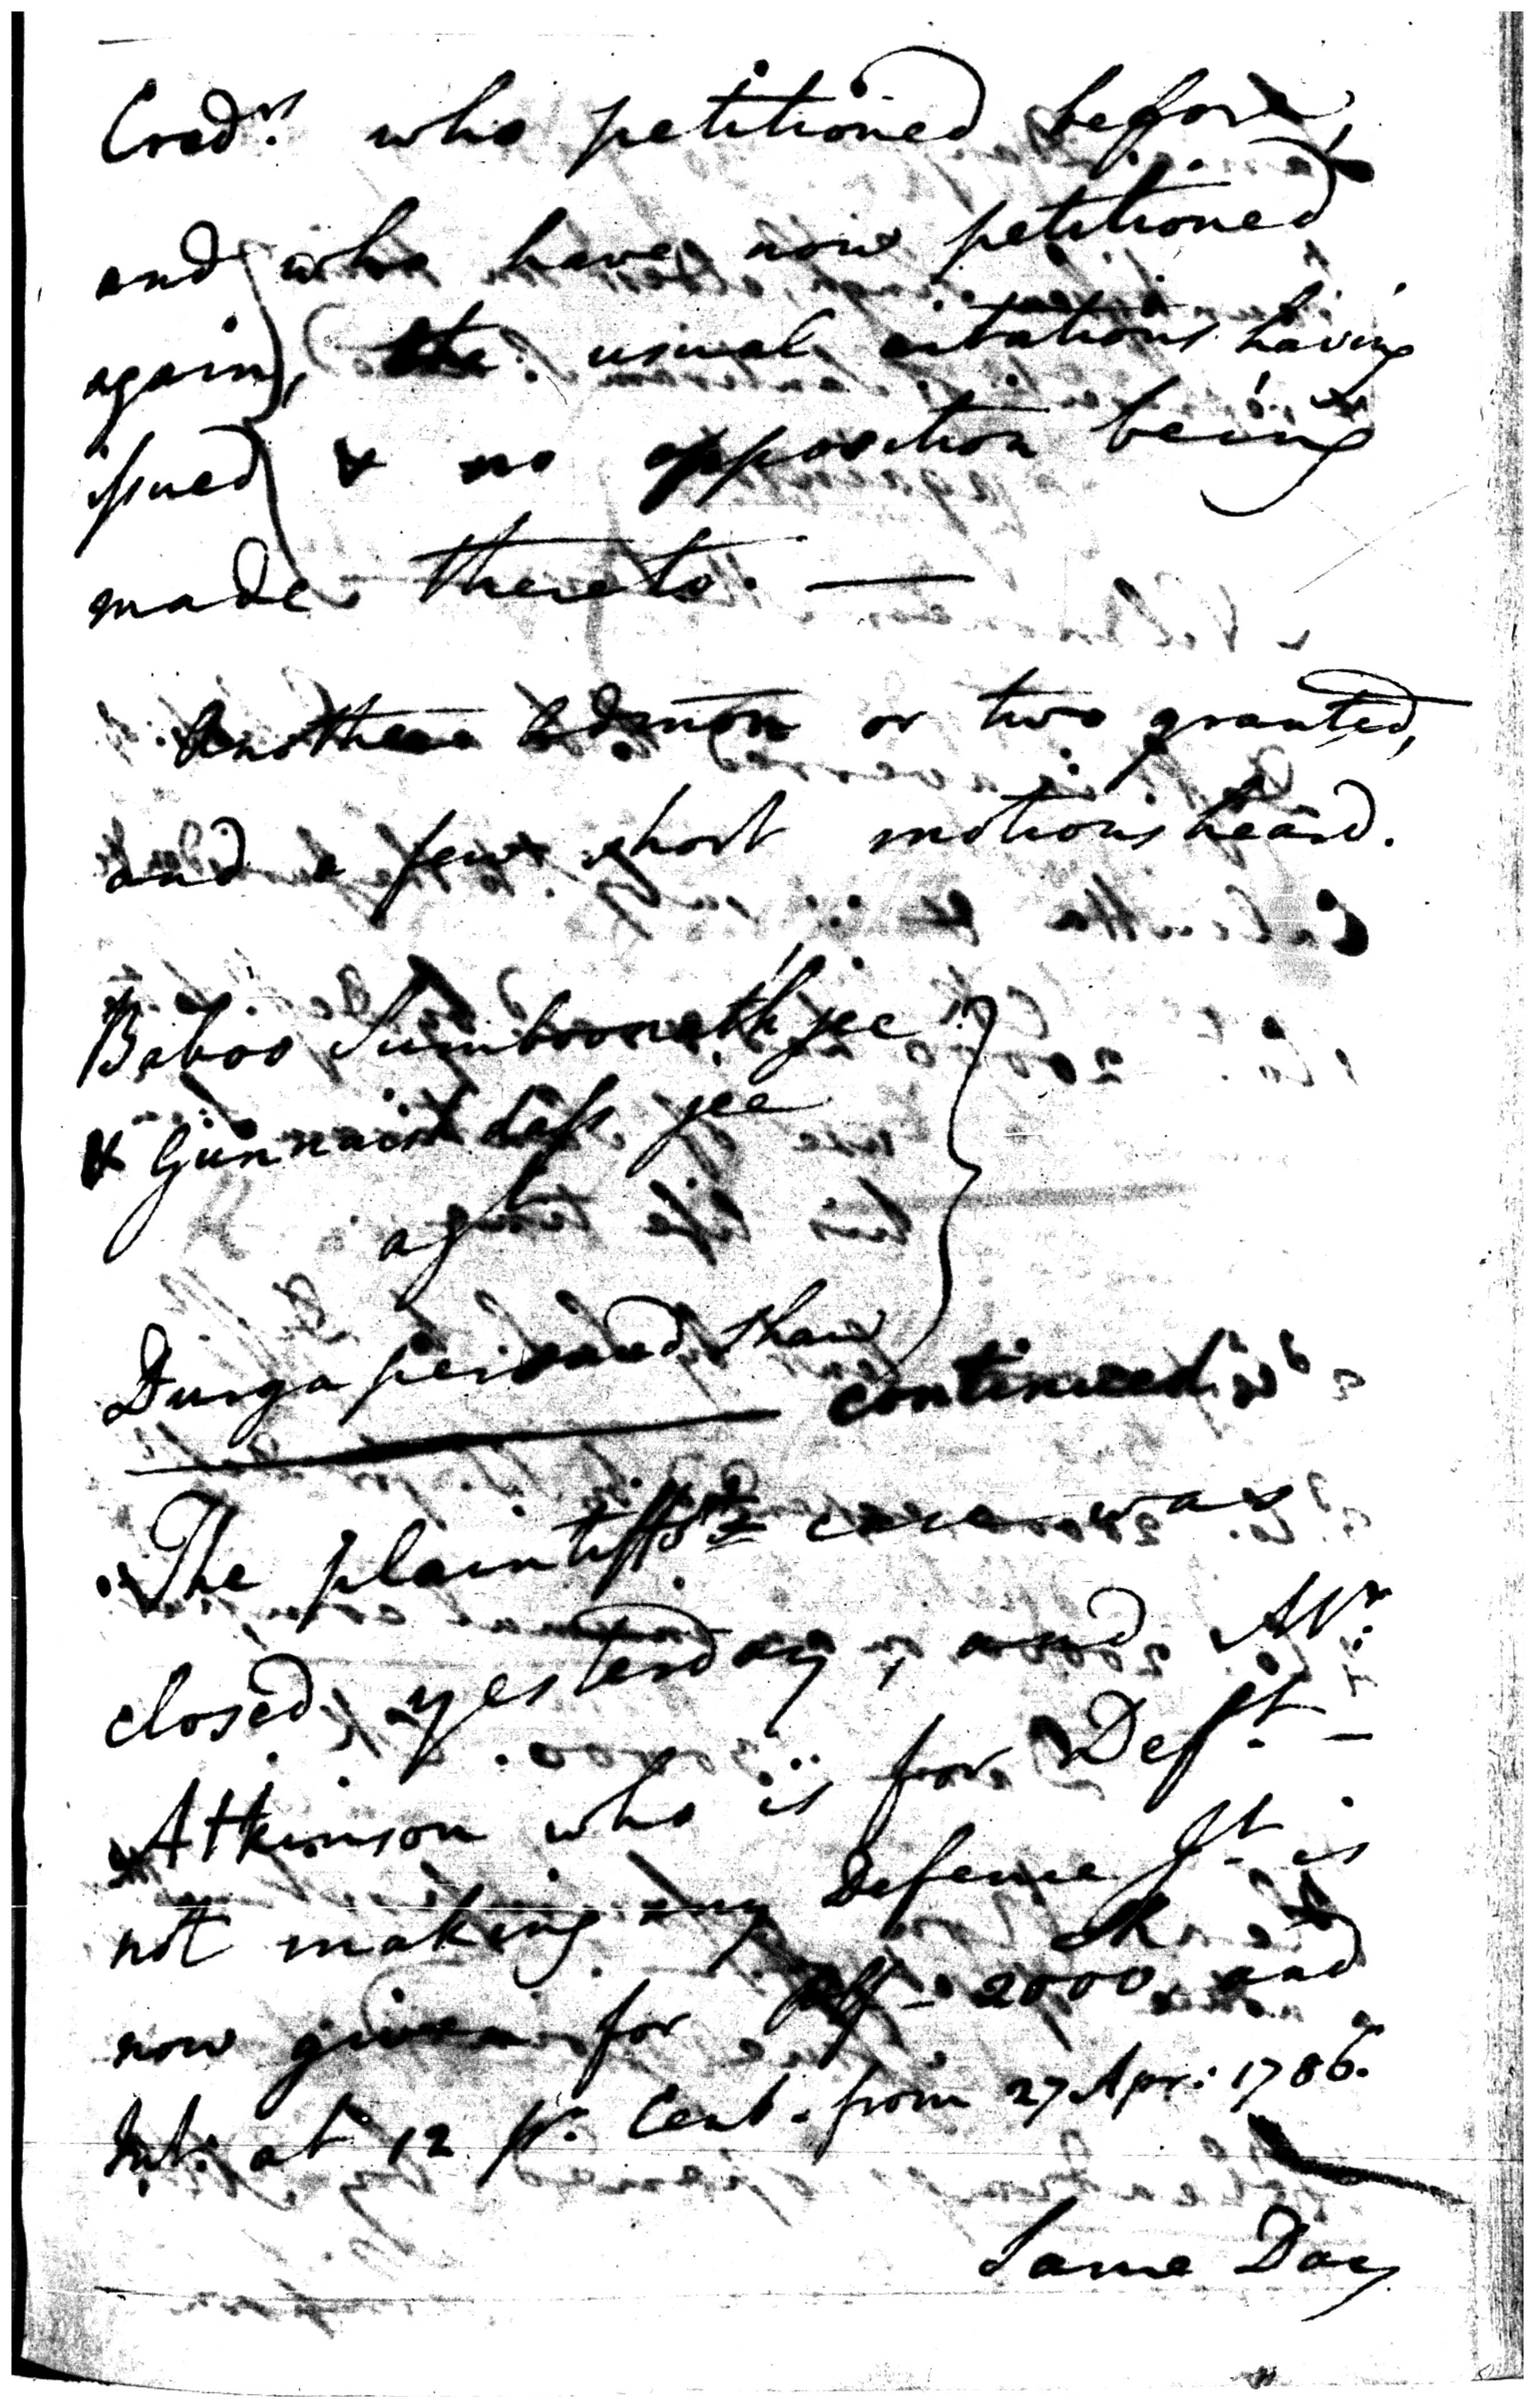 Cred.rs who petitioned before,
and who have now petitioned
again, the usual citations having
issued & no opposition being
made thereto. —
Another admon or two granted,
and a few short motions heard.
Baboo Sumboonath jee
& Gunnaist dass jee
agt
Durga persaud Shaw
continued.
The plaintiffs case was
closed yesterday, and Mr.
Atkinson who is for Deft. —
not making any Defence Jt. is
now given for Plff — 2000 and
Int: at 12 pr. Cent. from 27 Apr: 1786.
Same Day